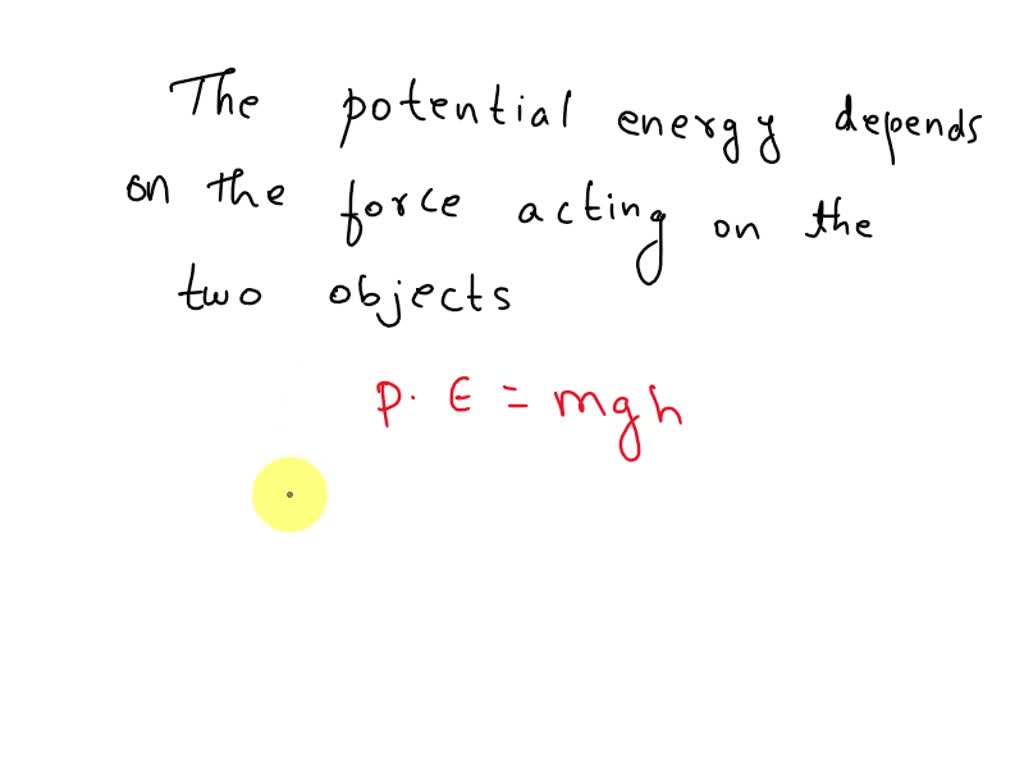 The potential energy depends
on the force acting on the
two objects
P. E = mgh